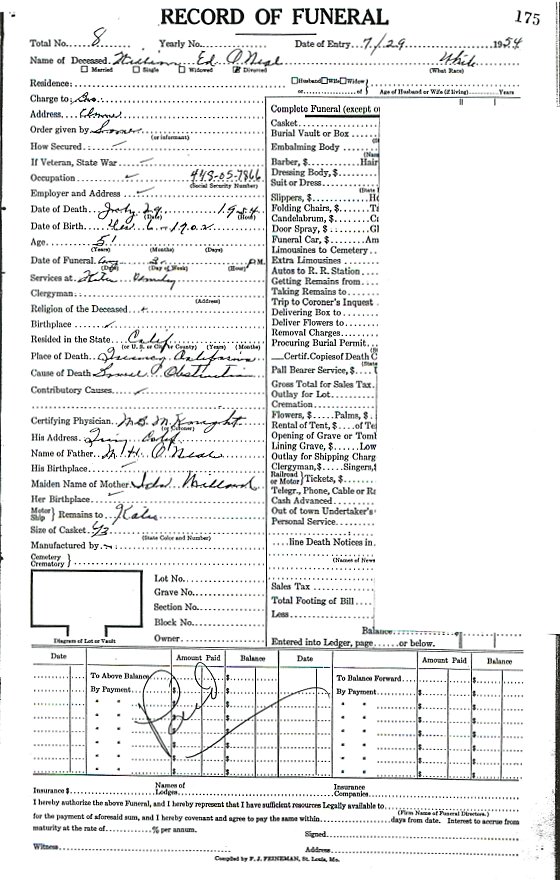 RECORD OF FUNERAL
175
Total No. 8 Yearly No. Date of Entry 7/29 1954
Name of Deceased William Ed O'Neal White
Married Single Widowed Divorced (What Race)
Residence: Husband Wife Widow
or of Age of Husband or Wife (if living) Years
Charge to
Address
Order given by
(or informant)
How Secured
If Veteran, State War
Occupation 448-05-7866
(Social Security Number)
Employer and Address
Date of Death July 29 1954
(Date) (Hour)
Date of Birth 6-1902
Age 51
(Years) (Months) (Days)
Date of Funeral Aug M.
(Date) (Day of Week) (Hour)
Services at
Clergyman
(Address)
Religion of the Deceased
Birthplace
Resided in the State Calif
(or U. S. or City or County) (Years) (Months)
Place of Death Quincy California
Cause of Death Bowel Obstruction
Contributory Causes
Certifying Physician
(or Coroner)
His Address Calif
Name of Father M. H. O'Neal
His Birthplace
Maiden Name of Mother Ida Milland
Her Birthplace
Motor
Ship } Remains to
Size of Casket 6/3
(State Color and Number)
Manufactured by
Cemetery
Crematory }
Complete Funeral (except o
Casket
Burial Vault or Box
Embalming Body
Barber, $ Hair
Dressing Body, $
Suit or Dress
Slippers, $ Ho
Folding Chairs, $ T
Candelabrum, $ C
Door Spray, $ Gl
Funeral Car, $ Am
Limousines to Cemetery
Extra Limousines
Autos to R. R. Station
Getting Remains from
Taking Remains to
Trip to Coroner's Inquest
Delivering Box to
Deliver Flowers to
Removal Charges
Procuring Burial Permit
Certif. Copies of Death C
Pall Bearer Service, $
Gross Total for Sales Tax
Outlay for Lot
Cremation
Flowers, $ Palms, $
Rental of Tent, $ of Te
Opening of Grave or Tomb
Lining Grave, $ Low
Outlay for Shipping Charg
Clergyman, $ Singers, $
Railroad
or Motor } Tickets, $
Telegr., Phone, Cable or Ra
Cash Advanced
Out of town Undertaker's
Personal Service
line Death Notices in
(Names of News
Sales Tax
Total Footing of Bill
Less
Balance
Entered into Ledger, page or below.
Lot No.
Grave No.
Section No.
Block No.
Owner
Diagram of Lot or Vault
Date Amount Paid Balance Date Amount Paid Balance
To Above Balance $ $ To Balance Forward $ $
By Payment By Payment
Paid
Insurance $ Names of Lodges Insurance Companies
I hereby authorize the above Funeral, and I hereby represent that I have sufficient resources Legally available to
(Firm Name of Funeral Directors.)
for the payment of aforesaid sum, and I hereby covenant and agree to pay the same within days from date. Interest to accrue from
maturity at the rate of % per annum. Signed
Witness Address
Compiled by F. J. FEINEMAN, St. Louis, Mo.